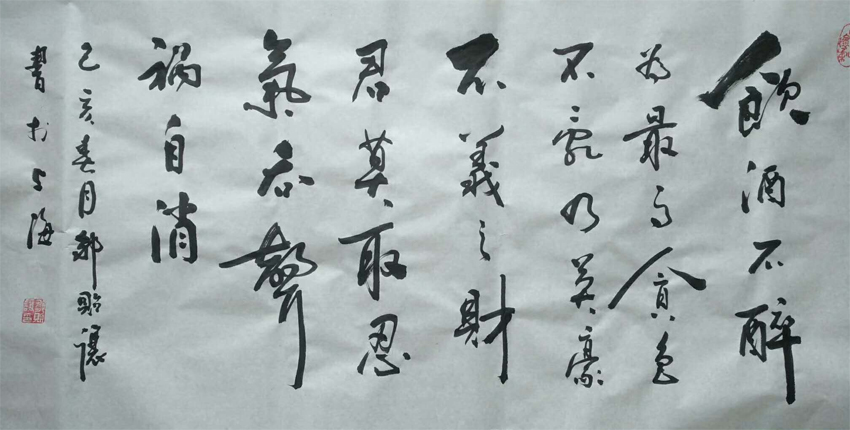 飲酒不醉
為最高貪色
不亂乃英豪
不義之財
君莫取忍
氣吞聲
禍自消
己亥春月郭貽讓
書於上海